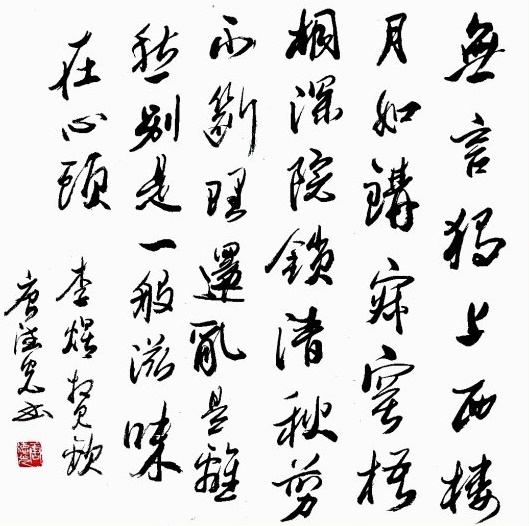 無言獨上西樓
月如鈎寂寞梧
桐深院鎖清秋剪
不斷理還亂是離
愁別是一般滋味
在心頭
李煜相見歡
唐书